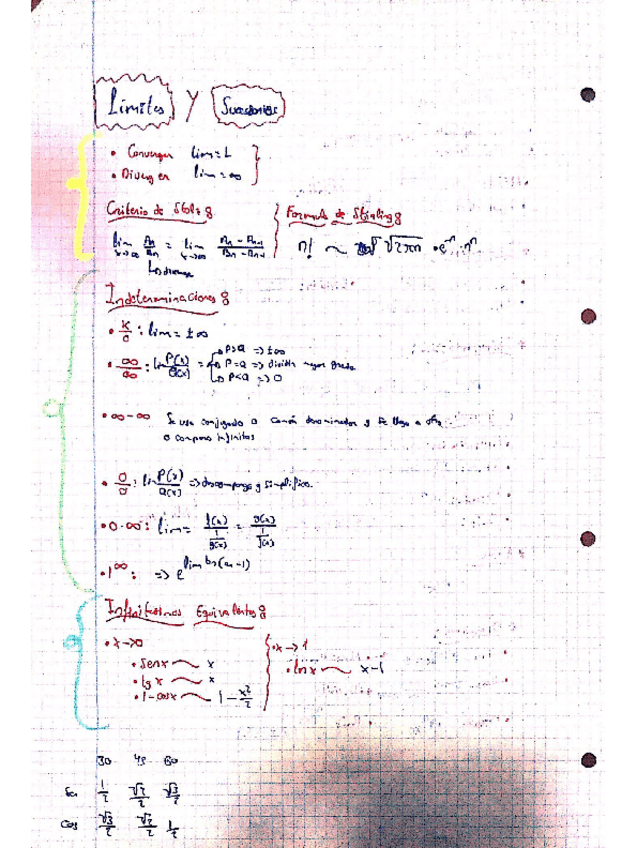 Limites y Sucesiones
• Convergen lim = L
• Divergen lim = ∞
Criterio de Stolz:
lim x→∞ An/Bn = lim x→∞ (An − An-1)/(Bn − Bn-1)
Formula de Stirling:
n! ~ √2πn · e^-n · n^n
Indeterminaciones:
• K/0 : lim = ±∞
• ∞/∞ : lim P(x)/Q(x) =
P>Q => ±∞
P=Q => dividir mayor grado
P<Q => 0
• ∞−∞ Se usa conjugado o común denominador y se llega a otra
o comparo infinitos
• 0/0 : lim P(x)/Q(x) => descompongo y simplifico.
• 0·∞ : lim = f(x)/(1/g(x)) = g(x)/(1/f(x))
• 1^∞ : => e^lim bn(an−1)
Infinitesimos Equivalentes:
• x→0
• Sen x ~ x
• tg x ~ x
• 1−cos x ~ 1 − x²/2
• x→1
• ln x ~ x−1
30 45 60
Sen 1/2 √2/2 √3/2
Cos √3/2 √2/2 1/2